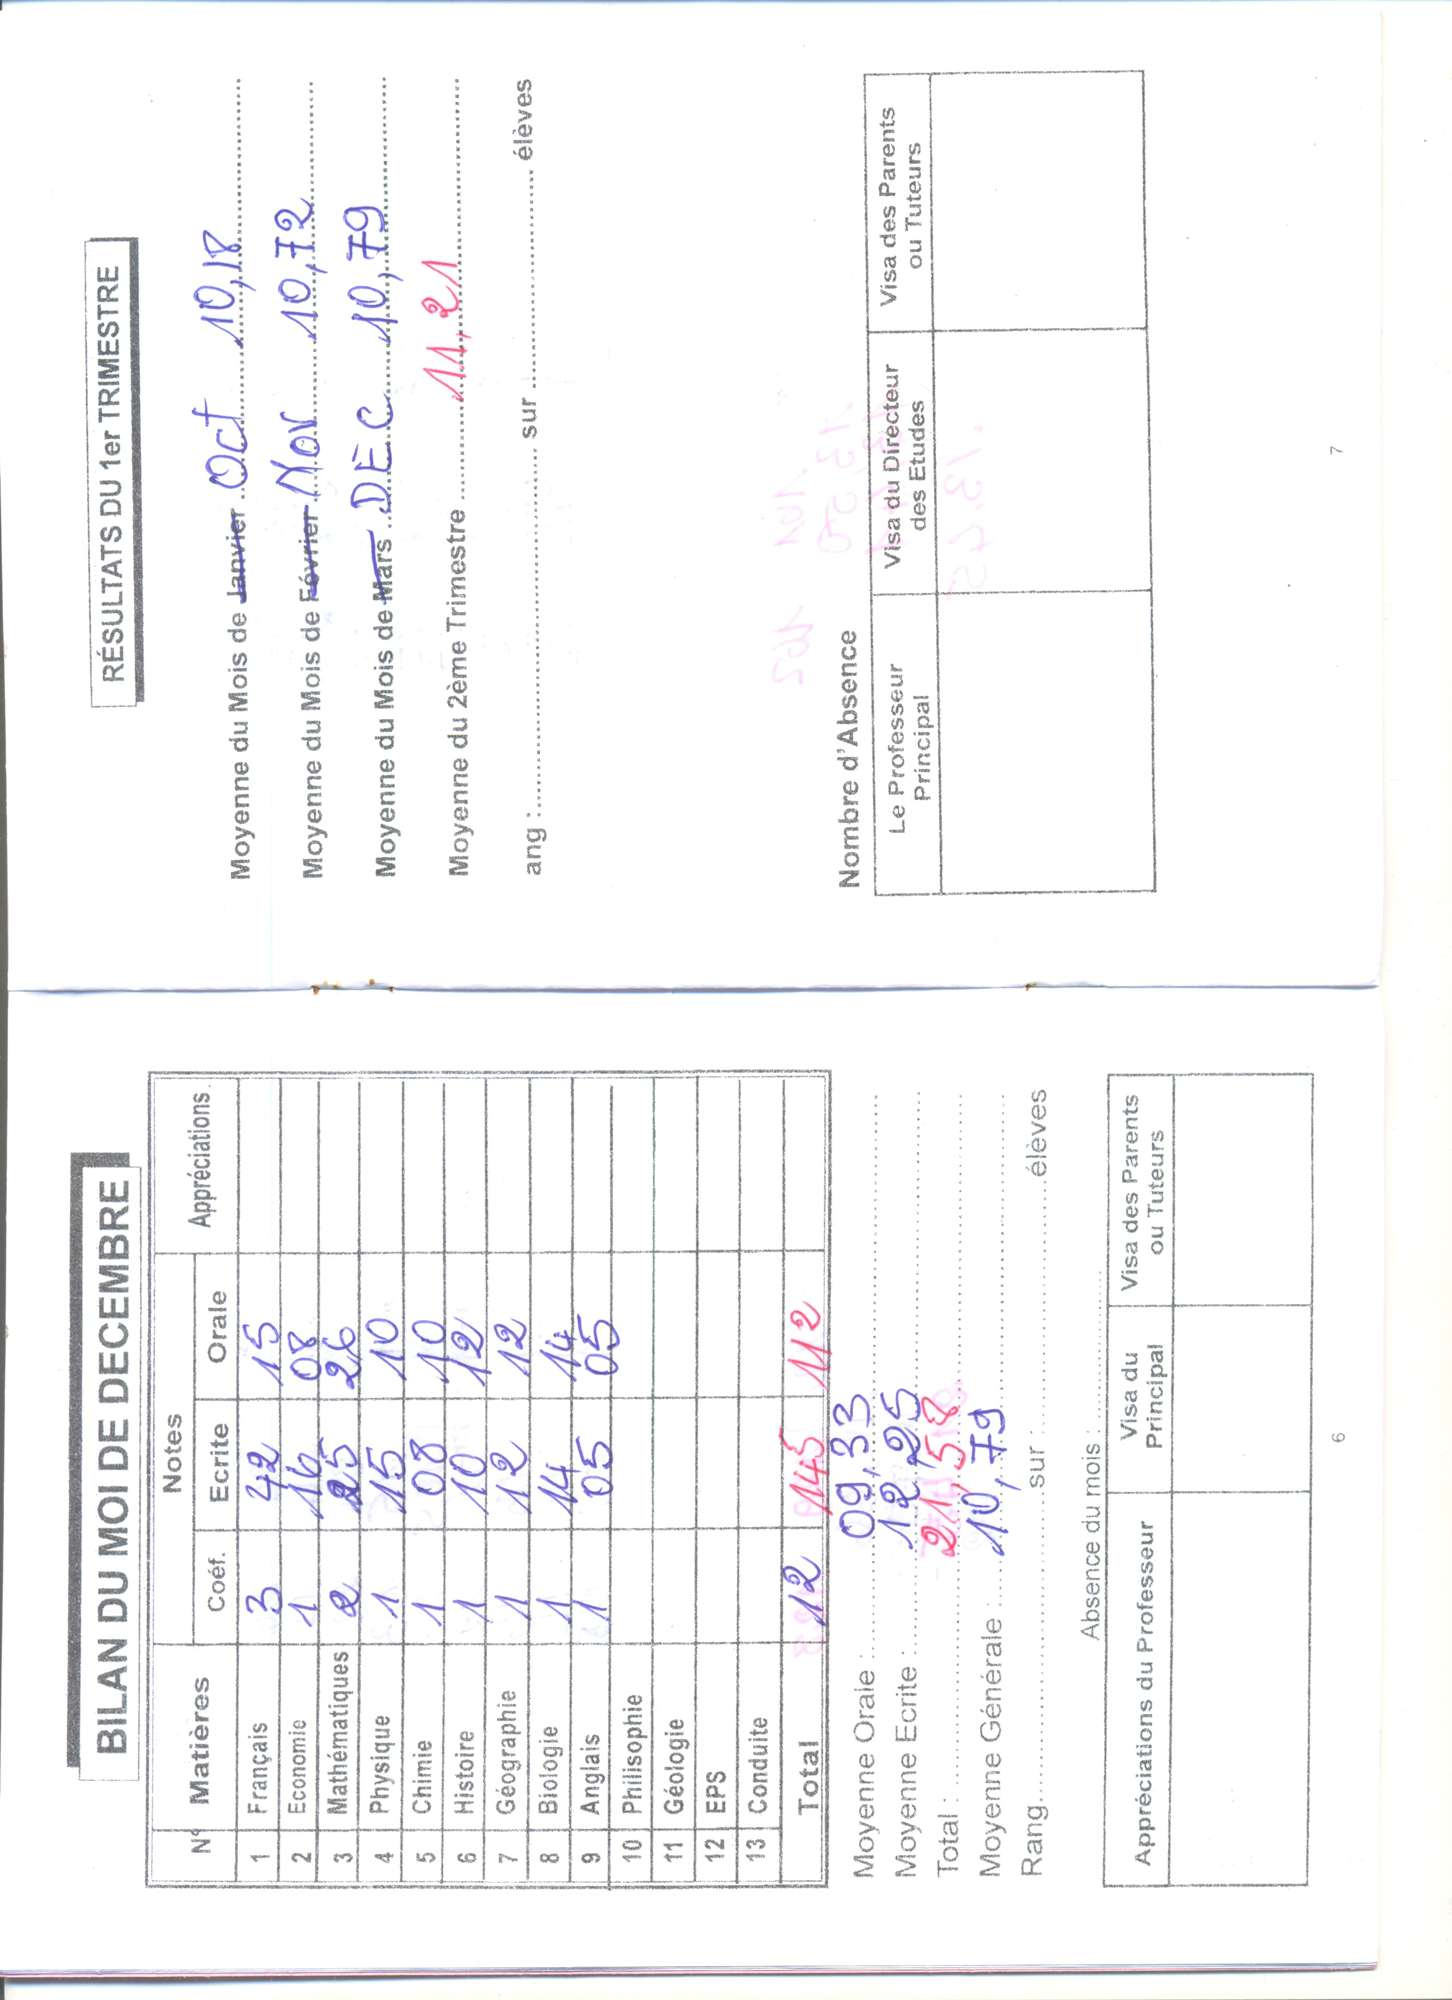 BILAN DU MOI DE DECEMBRE
N° Matières Notes Appréciations
Coéf. Ecrite Orale
1 Français 3 42 15
2 Economie 1 16 08
3 Mathématiques 2 25 26
4 Physique 1 15 10
5 Chimie 1 08 10
6 Histoire 1 10 12
7 Géographie 1 12 12
8 Biologie 1 14 14
9 Anglais 1 05 05
10 Philisophie
11 Géologie
12 EPS
13 Conduite
Total 12 145 112
Moyenne Orale : 09,33
Moyenne Ecrite : 12,25
Total : 21,58
Moyenne Générale : 10,79
Rang sur : élèves
Absence du mois :
Appréciations du Professeur Visa du Principal Visa des Parents ou Tuteurs
6
RÉSULTATS DU 1er TRIMESTRE
Moyenne du Mois de Janvier Oct 10,18
Moyenne du Mois de Février Nov 10,72
Moyenne du Mois de Mars DEC 10,79
Moyenne du 2ème Trimestre 11,21
ang : sur élèves
Nombre d'Absence
Le Professeur Principal Visa du Directeur des Etudes Visa des Parents ou Tuteurs
7